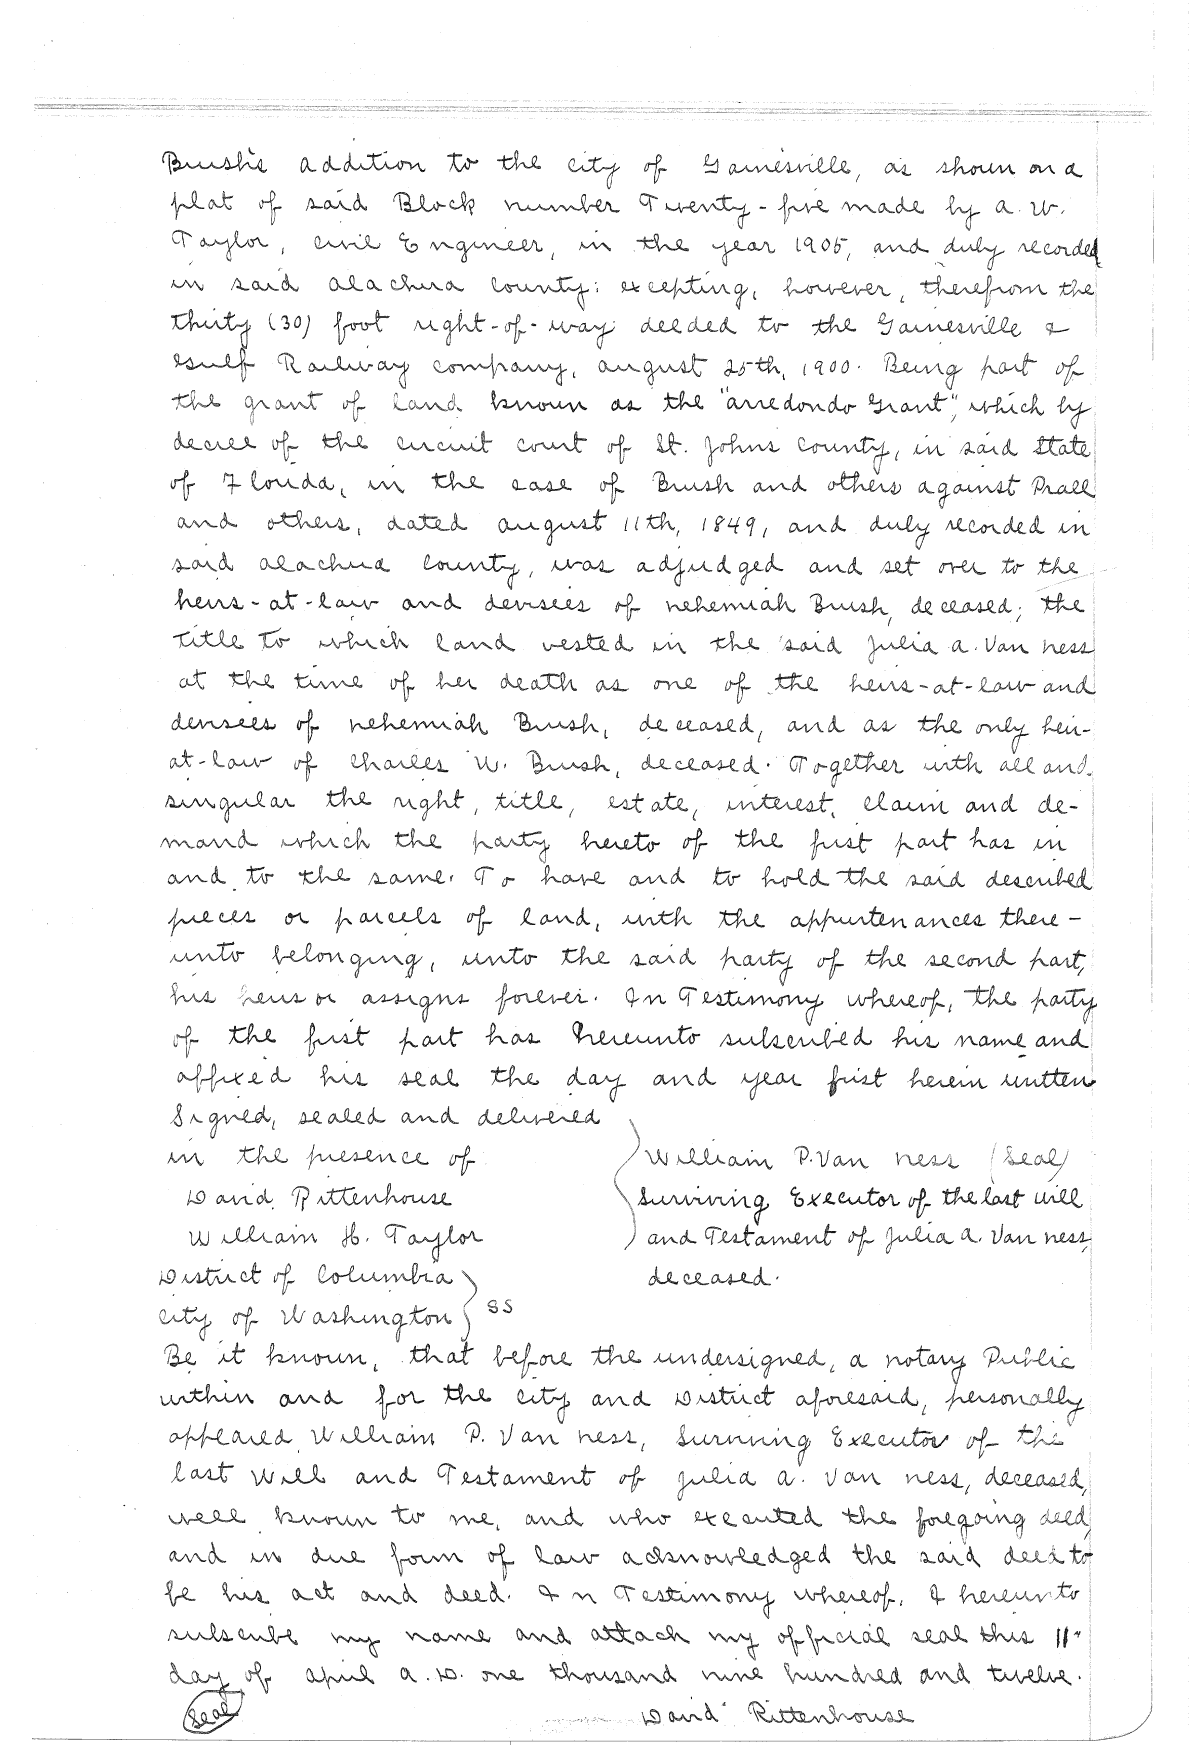 Brush's addition to the city of Gainesville, as shown on a
plat of said Block number Twenty-five made by A. W.
Taylor, civil Engineer, in the year 1905, and duly recorded
in said Alachua County: excepting, however, therefrom the
thirty (30) foot right-of-way deeded to the Gainesville &
Gulf Railway company, August 25th, 1900. Being part of
the grant of land known as the "Arredondo Grant", which by
decree of the circuit court of St. Johns County, in said State
of Florida, in the case of Brush and others against Prall
and others, dated August 11th, 1849, and duly recorded in
said Alachua County, was adjudged and set over to the
heirs-at-law and devisees of Nehemiah Brush, deceased; the
title to which land vested in the said Julia A. Van Ness
at the time of her death as one of the heirs-at-law and
devisees of Nehemiah Brush, deceased, and as the only heir-
at-law of Charles W. Brush, deceased. Together with all and
singular the right, title, estate, interest, claim and de-
mand which the party hereto of the first part has in
and to the same. To have and to hold the said described
pieces or parcels of land, with the appurtenances there-
unto belonging, unto the said party of the second part,
his heirs or assigns forever. In Testimony whereof, the party
of the first part has hereunto subscribed his name and
affixed his seal the day and year first herein written
Signed, sealed and delivered
in the presence of
William P. Van Ness (Seal)
David Rittenhouse
Surviving Executor of the last will
William H. Taylor
and Testament of Julia A. Van Ness,
District of Columbia
deceased.
City of Washington } SS
Be it known, that before the undersigned, a Notary Public
within and for the City and District aforesaid, personally
appeared William P. Van Ness, Surviving Executor of the
last Will and Testament of Julia A. Van Ness, deceased,
well known to me, and who executed the foregoing deed,
and in due form of law acknowledged the said deed to
be his act and deed. In Testimony whereof, I hereunto
subscribe my name and attach my official seal this 11"
day of April A.D. one thousand nine hundred and twelve.
(Seal) David Rittenhouse